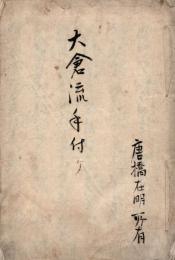 大倉流手付
唐橋在明所有